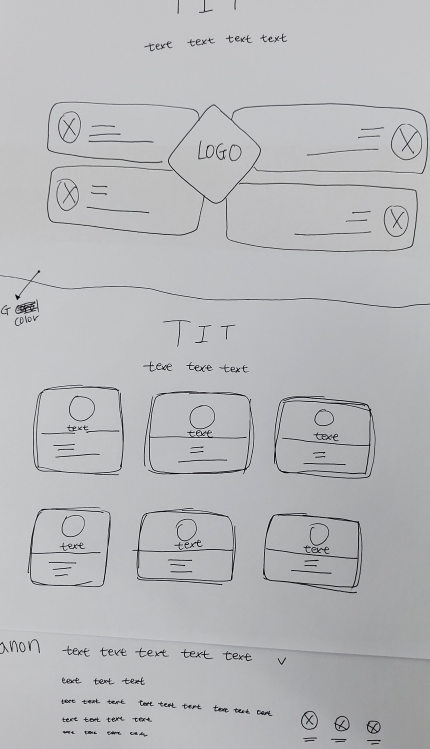 TIT
text text text text
LOGO
G
color
TIT
text text text
text
text
text
text
text
text
anon text text text text text v
text text text
text text text text text text text text text
text text text text